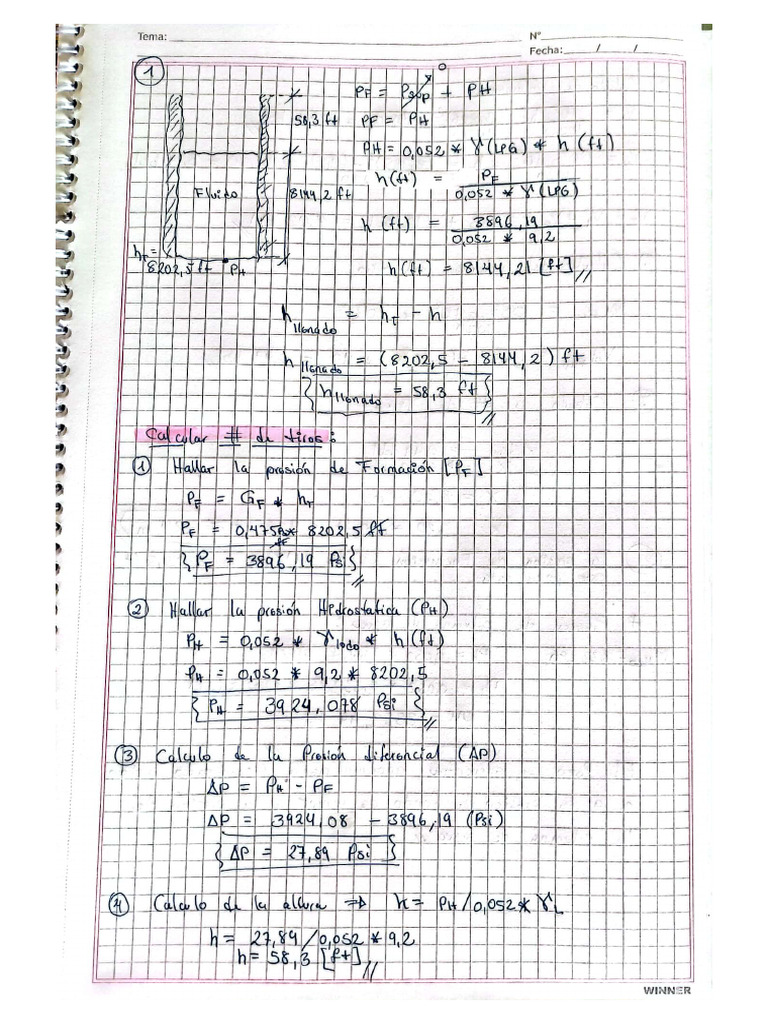 Tema:
N°
Fecha: / /
1
PF = Psup + PH
0
58,3 ft
PF = PH
PH = 0,052 * γ (LPG) * h (ft)
h(ft) = PF / 0,052 * γ (LPG)
Fluido
8144,2 ft
h (ft) = 3896,19 / 0,052 * 9,2
hT = 8202,5 ft
PH
h(ft) = 8144,21 [ft]
h llenado = hT - h
h llenado = (8202,5 - 8144,2) ft
{ h llenado = 58,3 ft }
Calcular # de tiros:
① Hallar la presión de Formación [PF]
PF = GF * hT
PF = 0,475 Psi/ft * 8202,5 ft
{ PF = 3896,19 Psi }
② Hallar la presión Hidrostatica (PH)
PH = 0,052 * γlodo * h (ft)
PH = 0,052 * 9,2 * 8202,5
{ PH = 3924,078 Psi }
③ Calculo de la Presión diferencial (ΔP)
ΔP = PH - PF
ΔP = 3924,08 - 3896,19 (Psi)
{ ΔP = 27,89 Psi }
④ Calculo de la altura ⇒ h = PH / 0,052 * γL
h = 27,89 / 0,052 * 9,2
h = 58,3 [ft]
WINNER